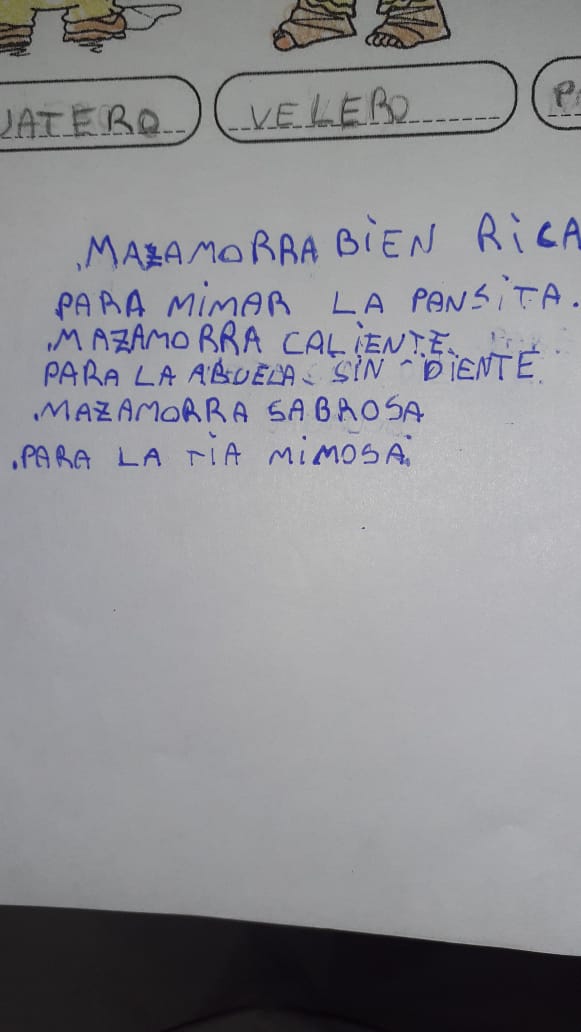 UATERO VELERO P
.MAZAMORRA BIEN RICA
PARA MIMAR LA PANSITA.
.MAZAMORRA CALIENTE.
PARA LA ABUELA SIN DIENTE.
.MAZAMORRA SABROSA
.PARA LA TIA MIMOSA.